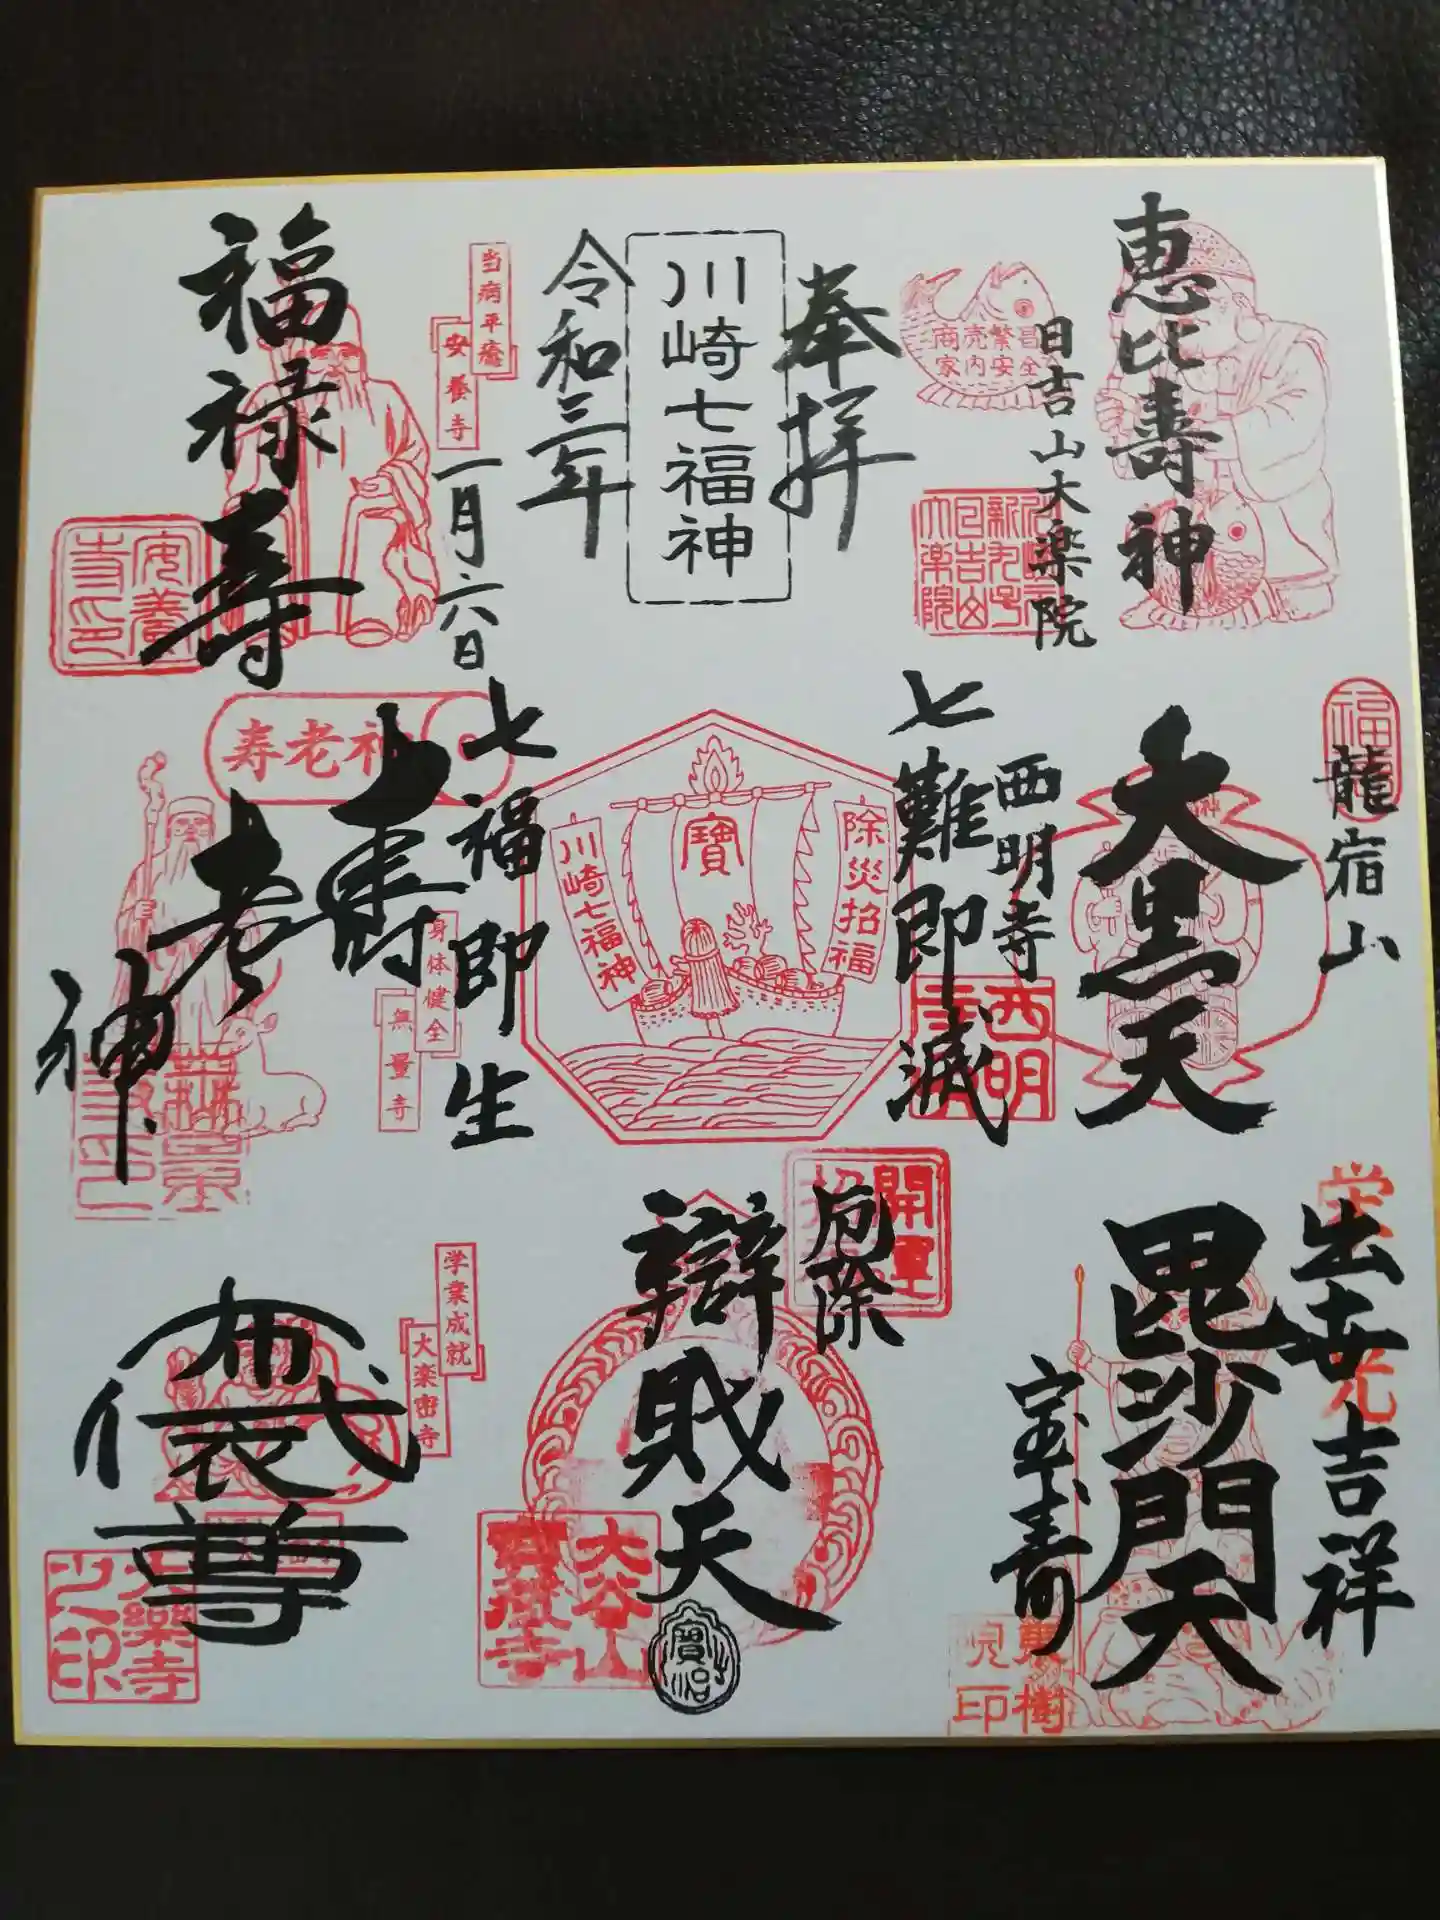 恵比壽神
日吉山大楽院
商売繁昌
家内安全
奉拝
川崎七福神
令和三年
一月六日
当病平癒
安養寺
福禄寿
安養
寺印
福
龍宿山
大黒天
西明寺
西明
七難即滅
除災招福
寶
川崎七福神
七福即生
寿老神
壽老神
身体健全
無量寺
出世吉祥
毘沙門天
宝寿
東樹
印
開運
厄除
辯財天
大谷山
寳蔵寺
学業成就
大楽密寺
布袋尊
大樂寺
之印